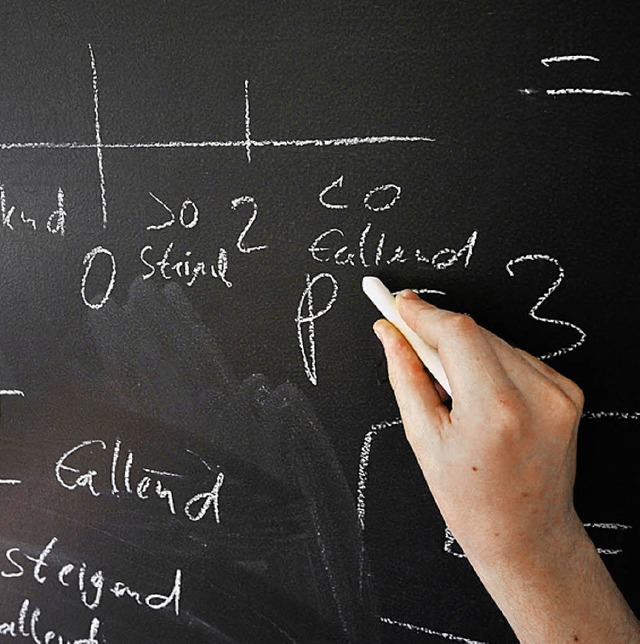 =
>0 2 <0
0 steigend fallend
p = 3
- fallend
steigend
fallend